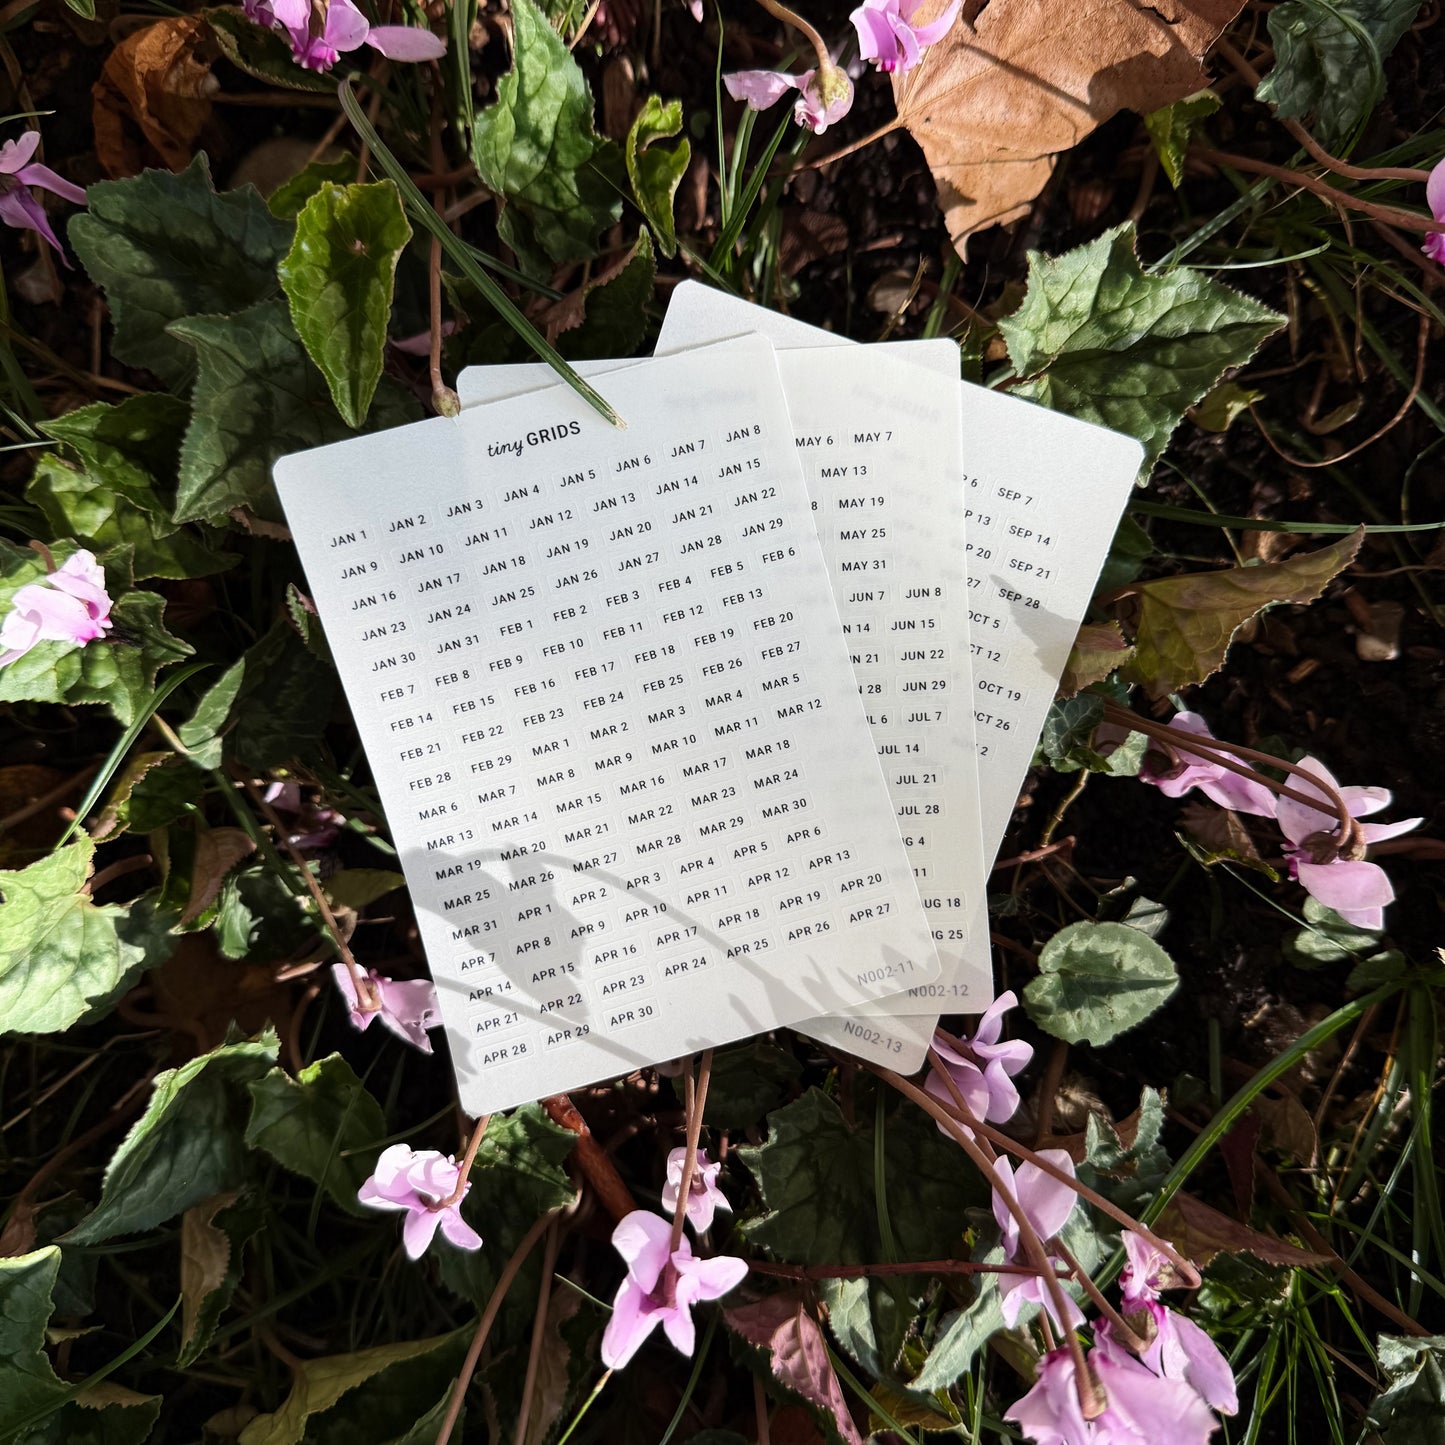 tiny GRIDS
JAN 1 JAN 2 JAN 3 JAN 4 JAN 5 JAN 6 JAN 7 JAN 8
JAN 9 JAN 10 JAN 11 JAN 12 JAN 13 JAN 14 JAN 15
JAN 16 JAN 17 JAN 18 JAN 19 JAN 20 JAN 21 JAN 22
JAN 23 JAN 24 JAN 25 JAN 26 JAN 27 JAN 28 JAN 29
JAN 30 JAN 31 FEB 1 FEB 2 FEB 3 FEB 4 FEB 5 FEB 6
FEB 7 FEB 8 FEB 9 FEB 10 FEB 11 FEB 12 FEB 13
FEB 14 FEB 15 FEB 16 FEB 17 FEB 18 FEB 19 FEB 20
FEB 21 FEB 22 FEB 23 FEB 24 FEB 25 FEB 26 FEB 27
FEB 28 FEB 29 MAR 1 MAR 2 MAR 3 MAR 4 MAR 5
MAR 6 MAR 7 MAR 8 MAR 9 MAR 10 MAR 11 MAR 12
MAR 13 MAR 14 MAR 15 MAR 16 MAR 17 MAR 18
MAR 19 MAR 20 MAR 21 MAR 22 MAR 23 MAR 24
MAR 25 MAR 26 MAR 27 MAR 28 MAR 29 MAR 30
MAR 31 APR 1 APR 2 APR 3 APR 4 APR 5 APR 6
APR 7 APR 8 APR 9 APR 10 APR 11 APR 12 APR 13
APR 14 APR 15 APR 16 APR 17 APR 18 APR 19 APR 20
APR 21 APR 22 APR 23 APR 24 APR 25 APR 26 APR 27
APR 28 APR 29 APR 30
N002-11
MAY 6 MAY 7
MAY 13
8 MAY 19
MAY 25
MAY 31
JUN 7 JUN 8
N 14 JUN 15
N 21 JUN 22
28 JUN 29
L 6 JUL 7
JUL 14
JUL 21
JUL 28
G 4
11
UG 18
G 25
N002-12
6 SEP 7
P 13 SEP 14
P 20 SEP 21
27 SEP 28
CT 5
CT 12
OCT 19
CT 26
2
N002-13